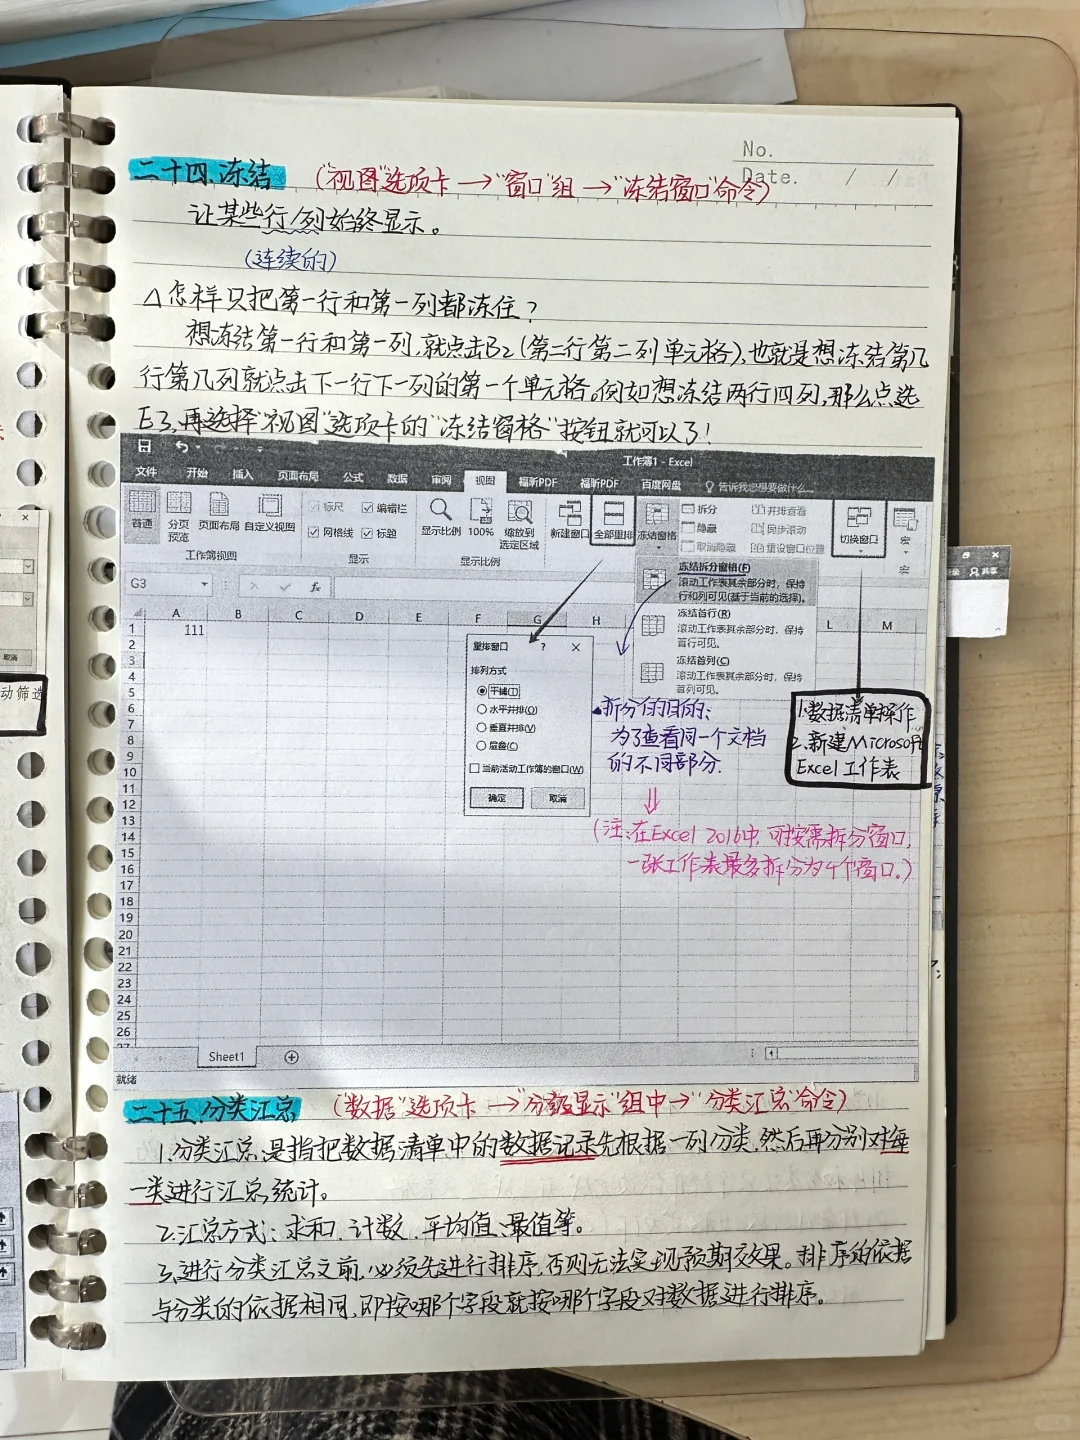 No.
Date. / /
二十四.冻结 ("视图"选项卡→"窗口"组→"冻结窗口"命令)
让某些行/列始终显示。
(连续的)
△怎样只把第一行和第一列都冻住?
想冻结第一行和第一列,就点击B2(第二行第二列单元格),也就是想冻结第几
行第几列就点击下一行下一列的第一个单元格。例如想冻结两行四列,那么点选
E3,再选择"视图"选项卡的"冻结窗格"按钮就可以了!
工作簿1 - Excel
文件 开始 插入 页面布局 公式 数据 审阅 视图 福昕PDF 福昕PDF 百度网盘 告诉我您想要做什么...
普通 分页预览 页面布局 自定义视图
工作簿视图
标尺 编辑栏
网格线 标题
显示
显示比例 100% 缩放到选定区域
显示比例
新建窗口 全部重排 冻结窗格
拆分 并排查看
隐藏 同步滚动
取消隐藏 重设窗口位置
切换窗口 宏
宏
冻结拆分窗格(F)
滚动工作表其余部分时,保持
行和列可见(基于当前的选择)。
冻结首行(R)
滚动工作表其余部分时,保持
首行可见。
冻结首列(C)
滚动工作表其余部分时,保持
首列可见。
G3 fx
A B C D E F G H L M
1 111
2
3
4
5
6
7
8
9
10
11
12
13
14
15
16
17
18
19
20
21
22
23
24
25
26
27
重排窗口 ? ×
排列方式
平铺(T)
水平并排(O)
垂直并排(V)
层叠(C)
当前活动工作簿的窗口(W)
确定 取消
拆分的目的:
为了查看同一个文档
的不同部分.
(注:在Excel 2016中,可按需拆分窗口,
一张工作表最多拆分为4个窗口。)
1.数据清单操作
2.新建Microsoft
Excel工作表
Sheet1
就绪
共享
取消
动筛选
二十五.分类汇总 ("数据"选项卡→"分级显示"组中→"分类汇总"命令)
1.分类汇总是指把数据清单中的数据记录先根据一列分类,然后再分别对每
一类进行汇总统计。
2.汇总方式:求和、计数、平均值、最值等。
3.进行分类汇总之前,必须先进行排序,否则无法实现预期效果。排序的依据
与分类的依据相同,即按哪个字段就按哪个字段对数据进行排序。